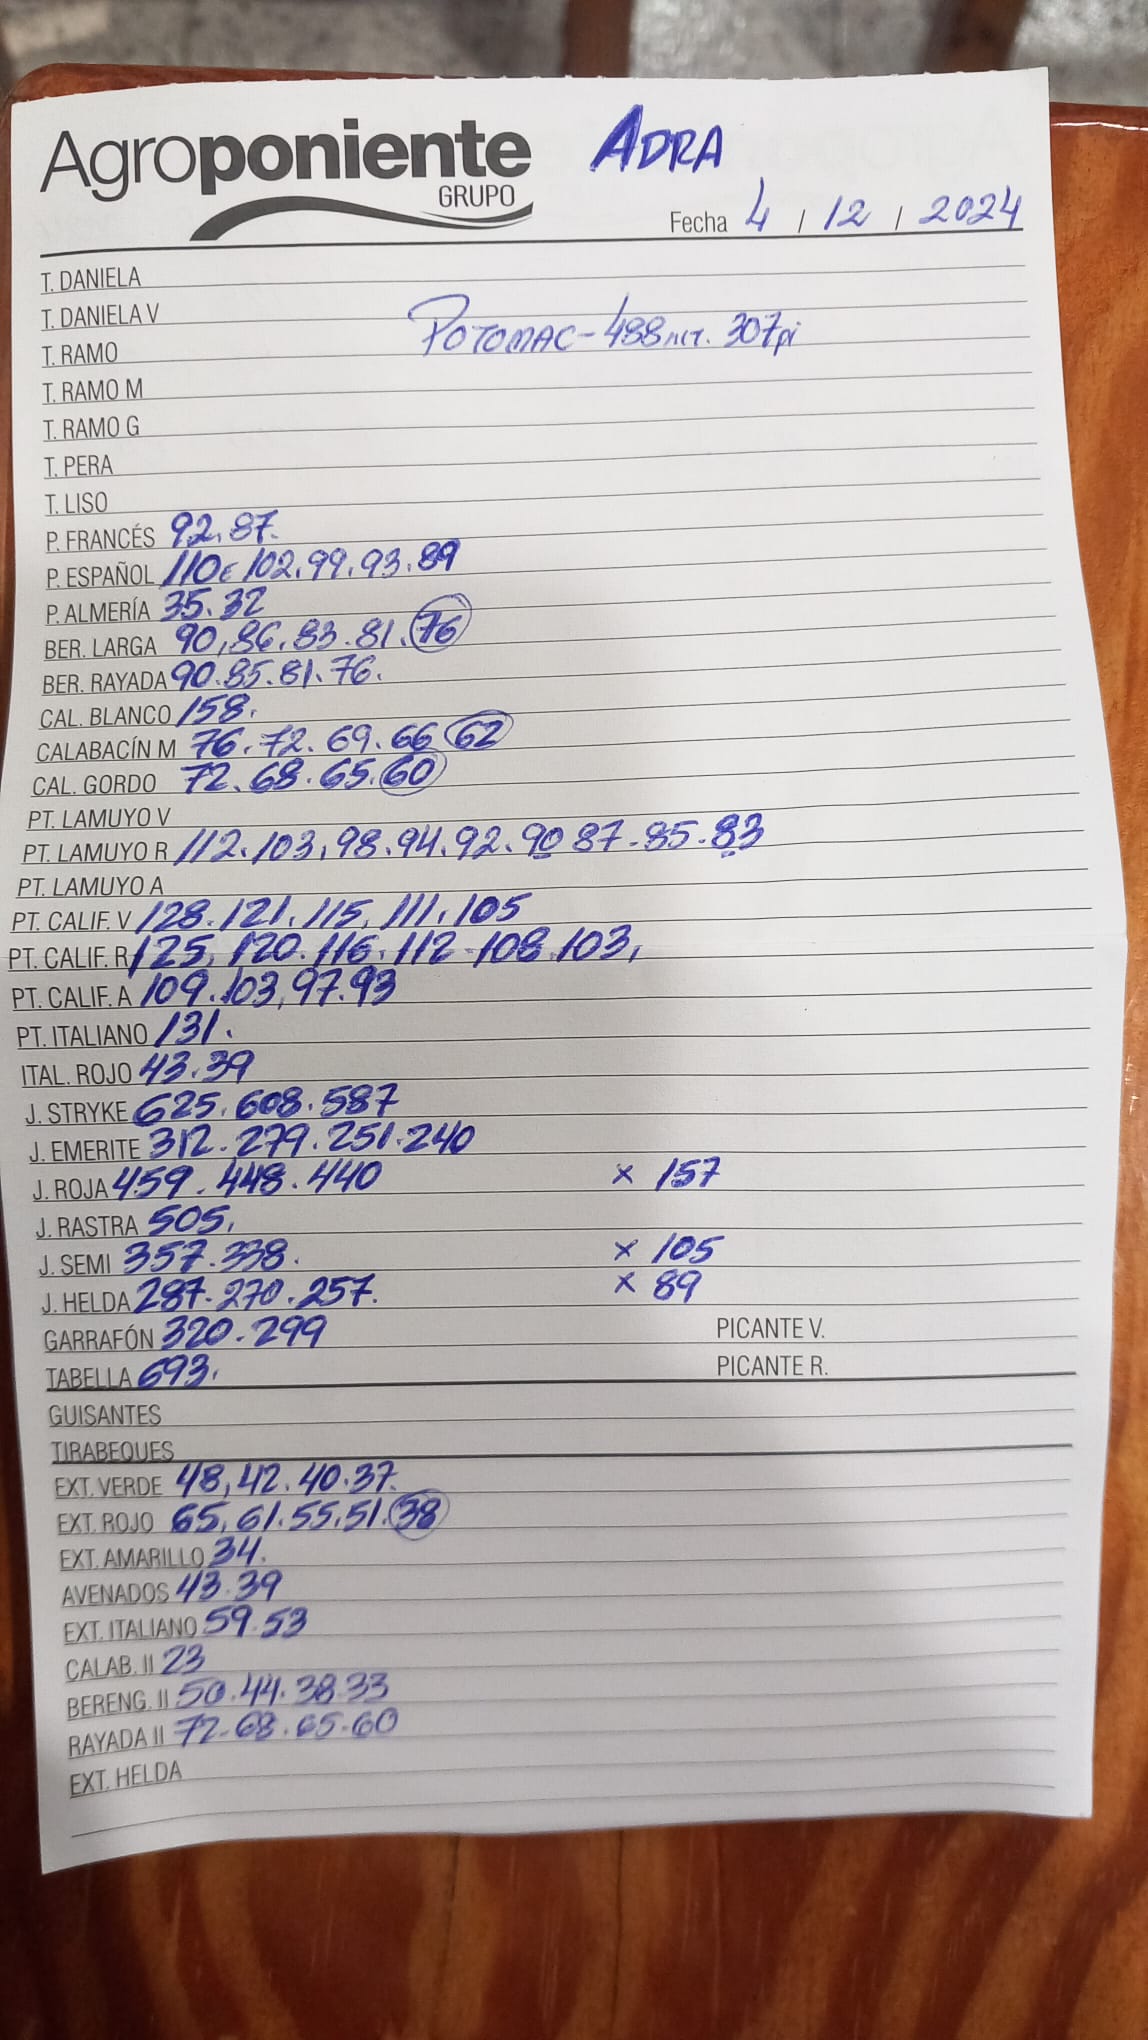 Agroponiente ADRA
GRUPO
Fecha 4 / 12 / 2024
T. DANIELA
T. DANIELA V
POTOMAC - 488 nct. 307 pi
T. RAMO
T. RAMO M
T. RAMO G
T. PERA
T. LISO
P. FRANCÉS 92. 87.
P. ESPAÑOL 110 E 102. 99. 93. 89
P. ALMERÍA 35. 32
BER. LARGA 90, 86. 83. 81. 76
BER. RAYADA 90. 85. 81. 76.
CAL. BLANCO 158.
CALABACÍN M 76. 72. 69. 66 62
CAL. GORDO 72. 68. 65. 60
PT. LAMUYO V
PT. LAMUYO R 112. 103, 98. 94. 92. 90 87 - 85 - 83
PT. LAMUYO A
PT. CALIF. V 128. 121. 115, 111. 105
PT. CALIF. R 125, 120. 116. 112 - 108. 103,
PT. CALIF. A 109. 103, 97. 93
PT. ITALIANO 131.
ITAL. ROJO 43. 39
J. STRYKE 625. 608. 587
J. EMERITE 312. 279. 251. 240
J. ROJA 459. 448. 440 x 157
J. RASTRA 505,
J. SEMI 357. 338. x 105
J. HELDA 287. 270. 257. x 89
GARRAFÓN 320. 299 PICANTE V.
TABELLA 693. PICANTE R.
GUISANTES
TIRABEQUES
EXT. VERDE 48, 42. 40. 37.
EXT. ROJO 65, 61. 55. 51. 38
EXT. AMARILLO 34.
AVENADOS 43. 39
EXT. ITALIANO 59. 53
CALAB. II 23
BERENG. II 50. 44. 38. 33
RAYADA II 72 - 68. 65 - 60
EXT. HELDA